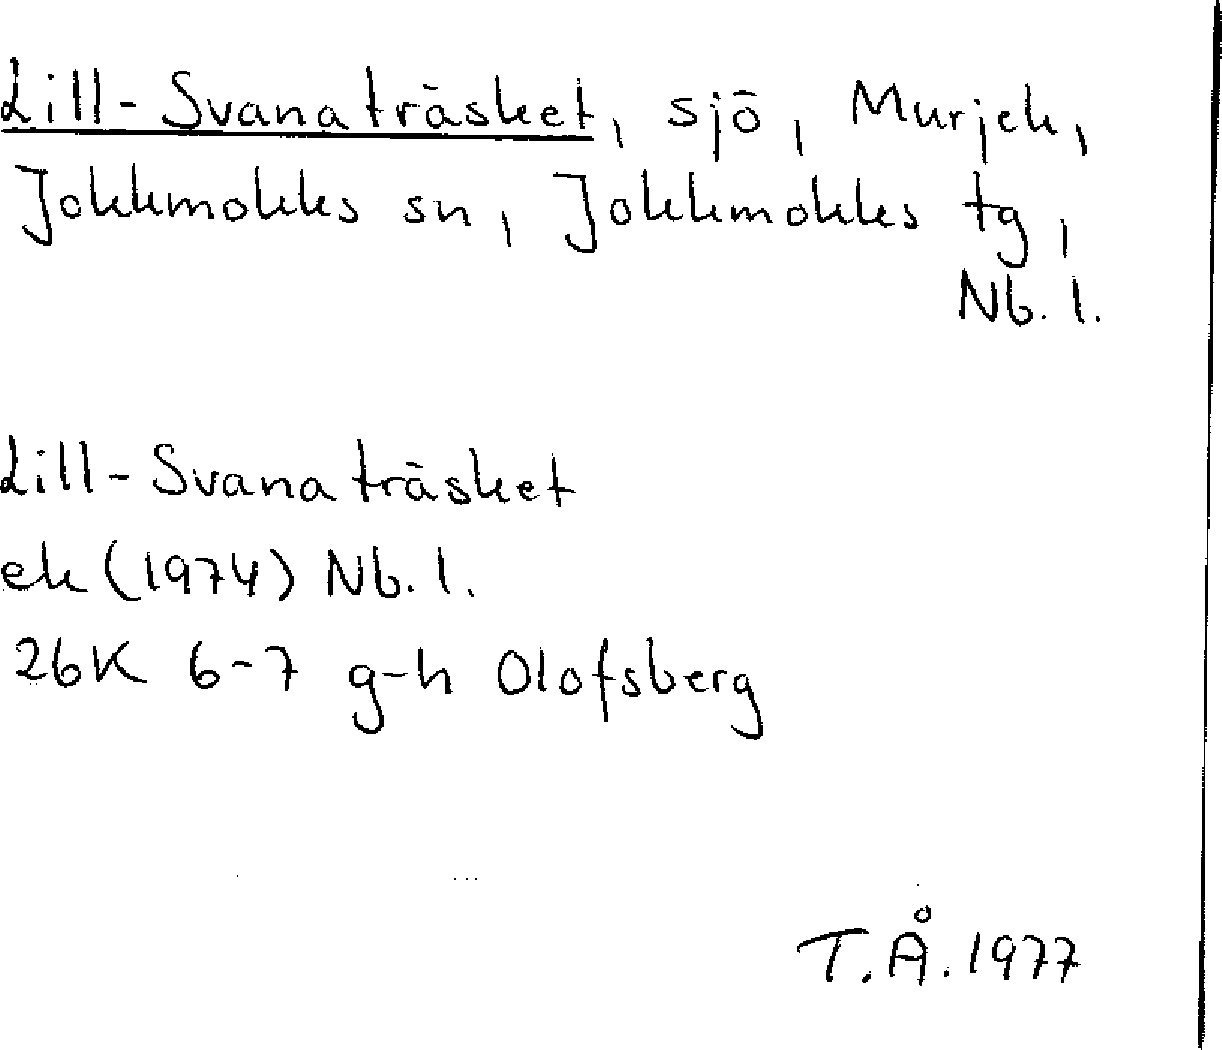 Lill-Svanaträsket, sjö, Murjek,
Jokkmokks sn, Jokkmokks tg,
Nb. l.
Lill-Svanaträsket
ek (1974) Nb. l.
26K 6-7 g-h Olofsberg
T.Å. 1977